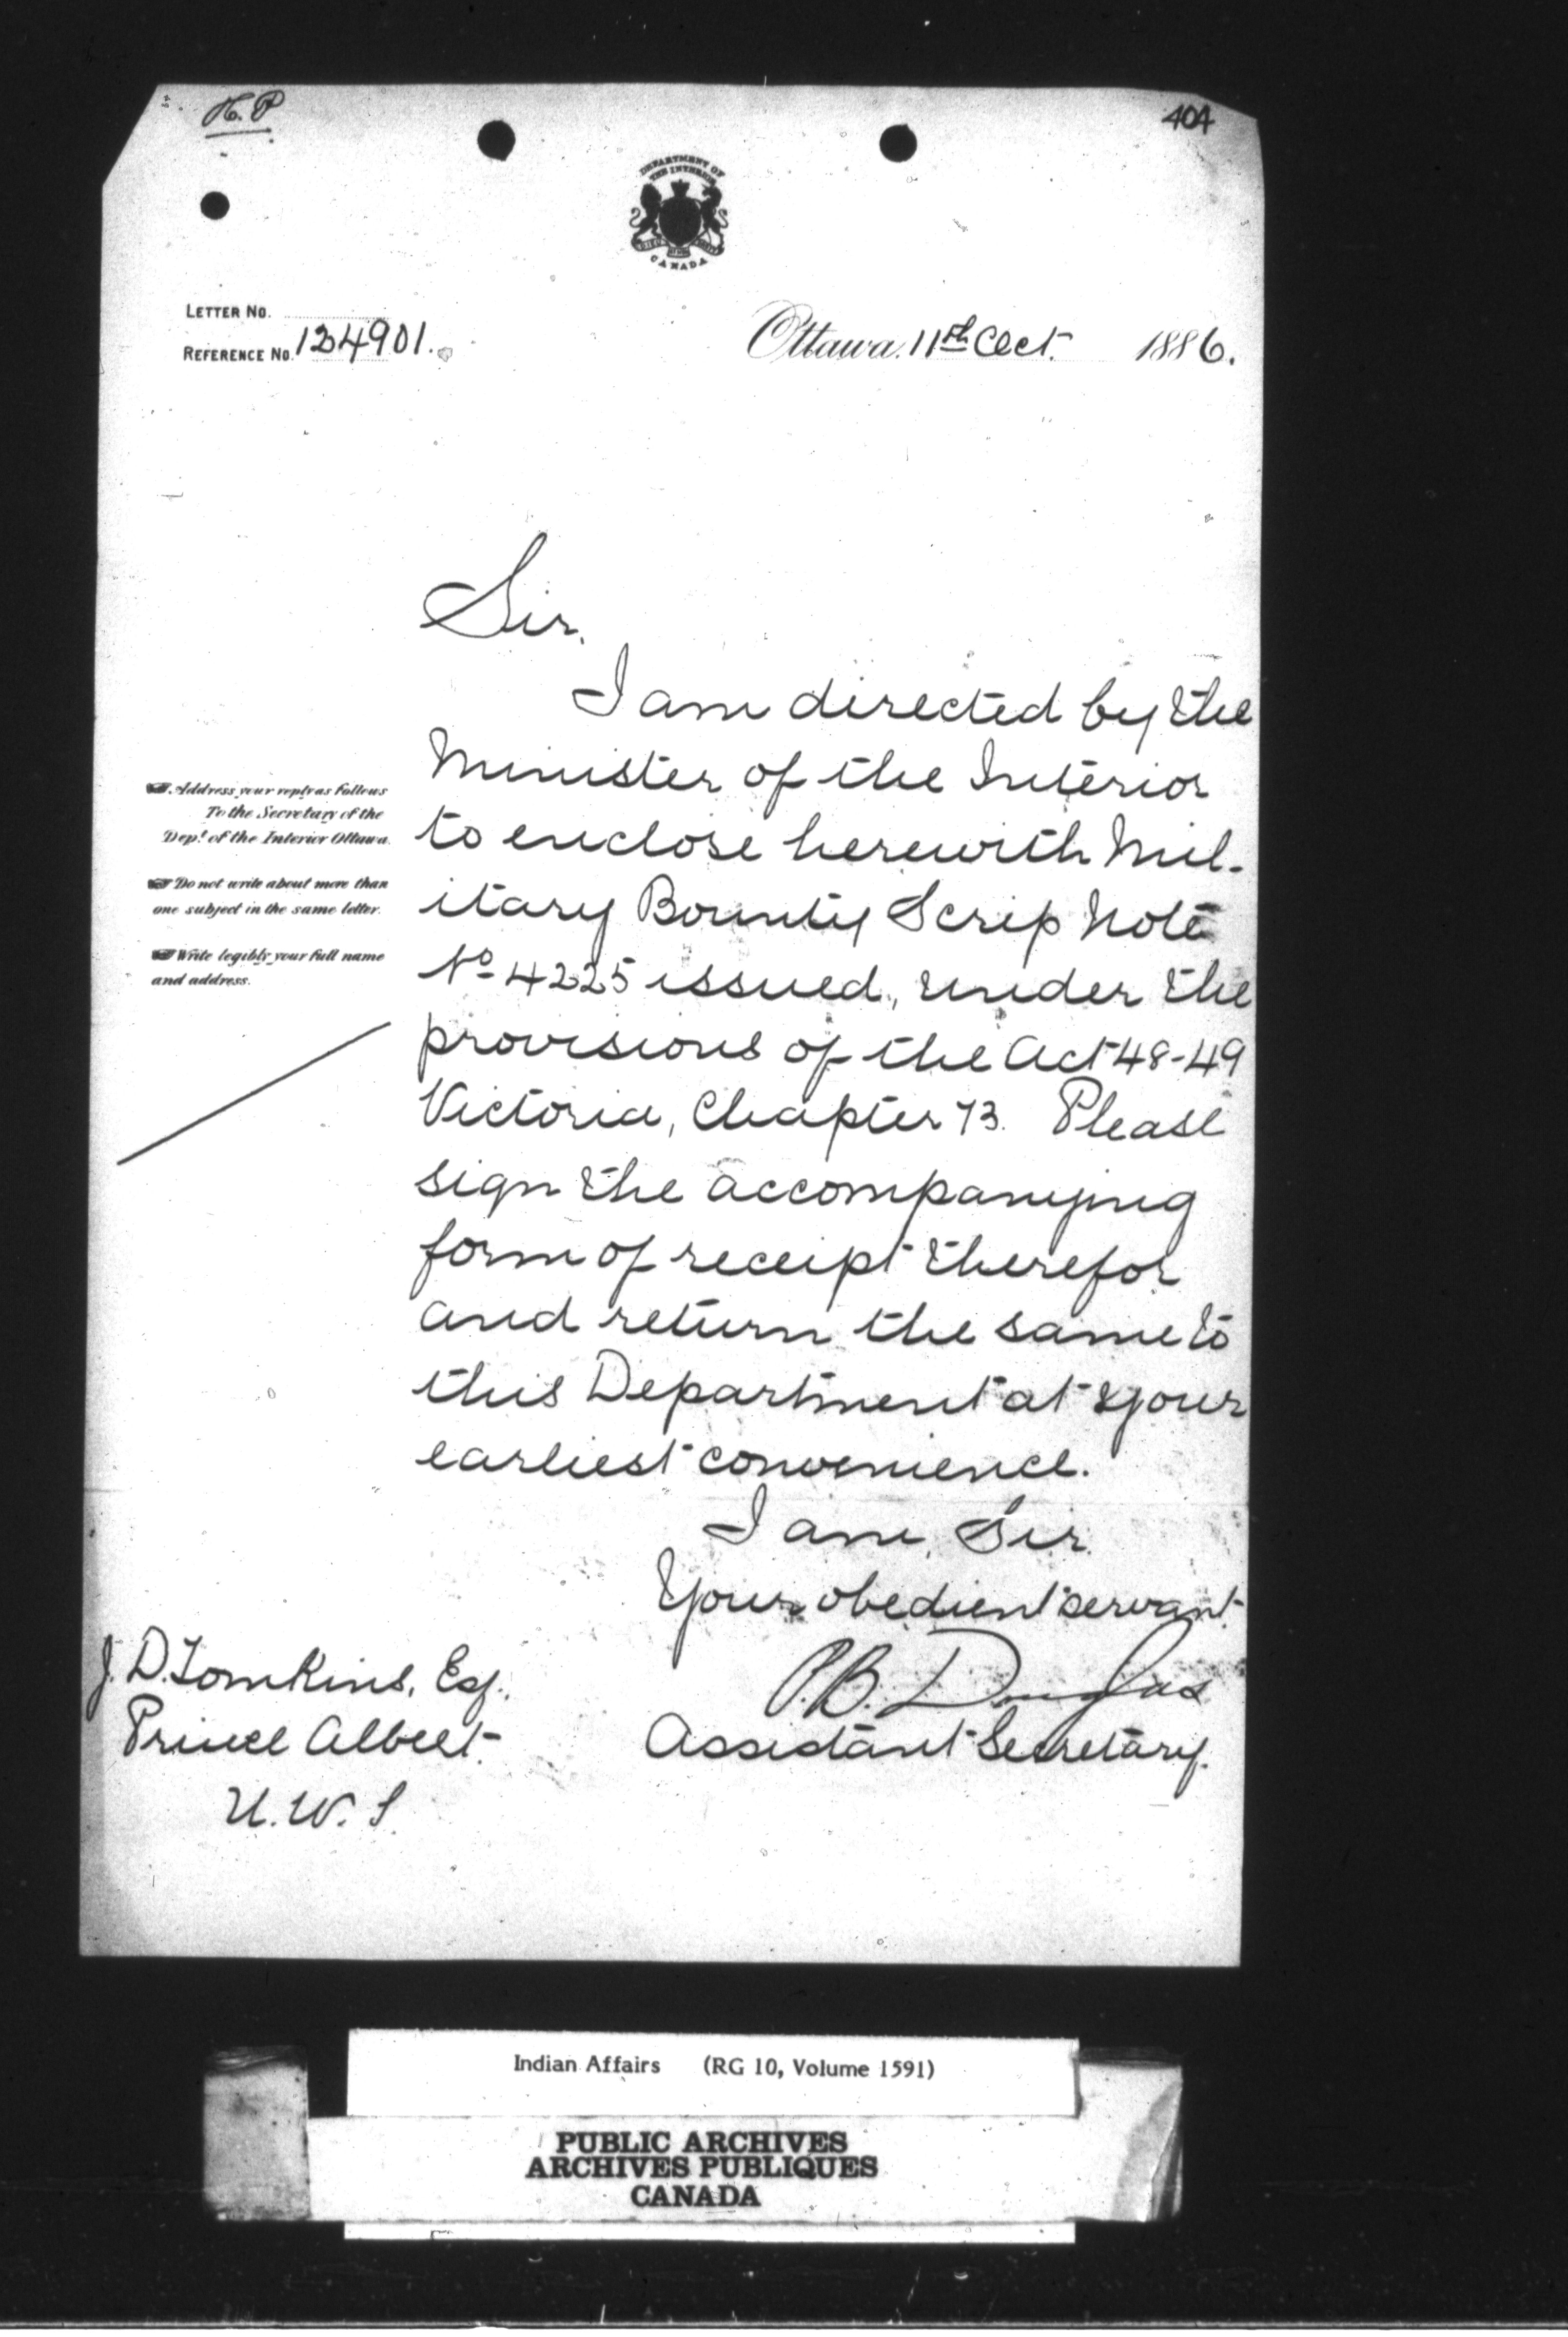 H.P
404
DEPARTMENT OF
THE INTERIOR
CANADA
LETTER NO.
REFERENCE NO. 124901.
Ottawa, 11th Oct. 1886.
Sir,
I am directed by the
Minister of the Interior
to enclose herewith Mil-
itary Bounty Scrip Note
No 4225 issued, under the
provisions of the Act 48-49
Victoria, Chapter 73. Please
sign the accompanying
form of receipt therefor
and return the same to
this Department at your
earliest convenience.
I am, Sir
Your obedient servant
P.B. Douglas
Assistant Secretary.
Address your reply as follows
To the Secretary of the
Dept. of the Interior Ottawa.
Do not write about more than
one subject in the same letter.
Write legibly your full name
and address.
J. D. Tomkins, Esq.,
Prince Albert.
N.W.T.
Indian Affairs (RG 10, Volume 1591)
PUBLIC ARCHIVES
ARCHIVES PUBLIQUES
CANADA